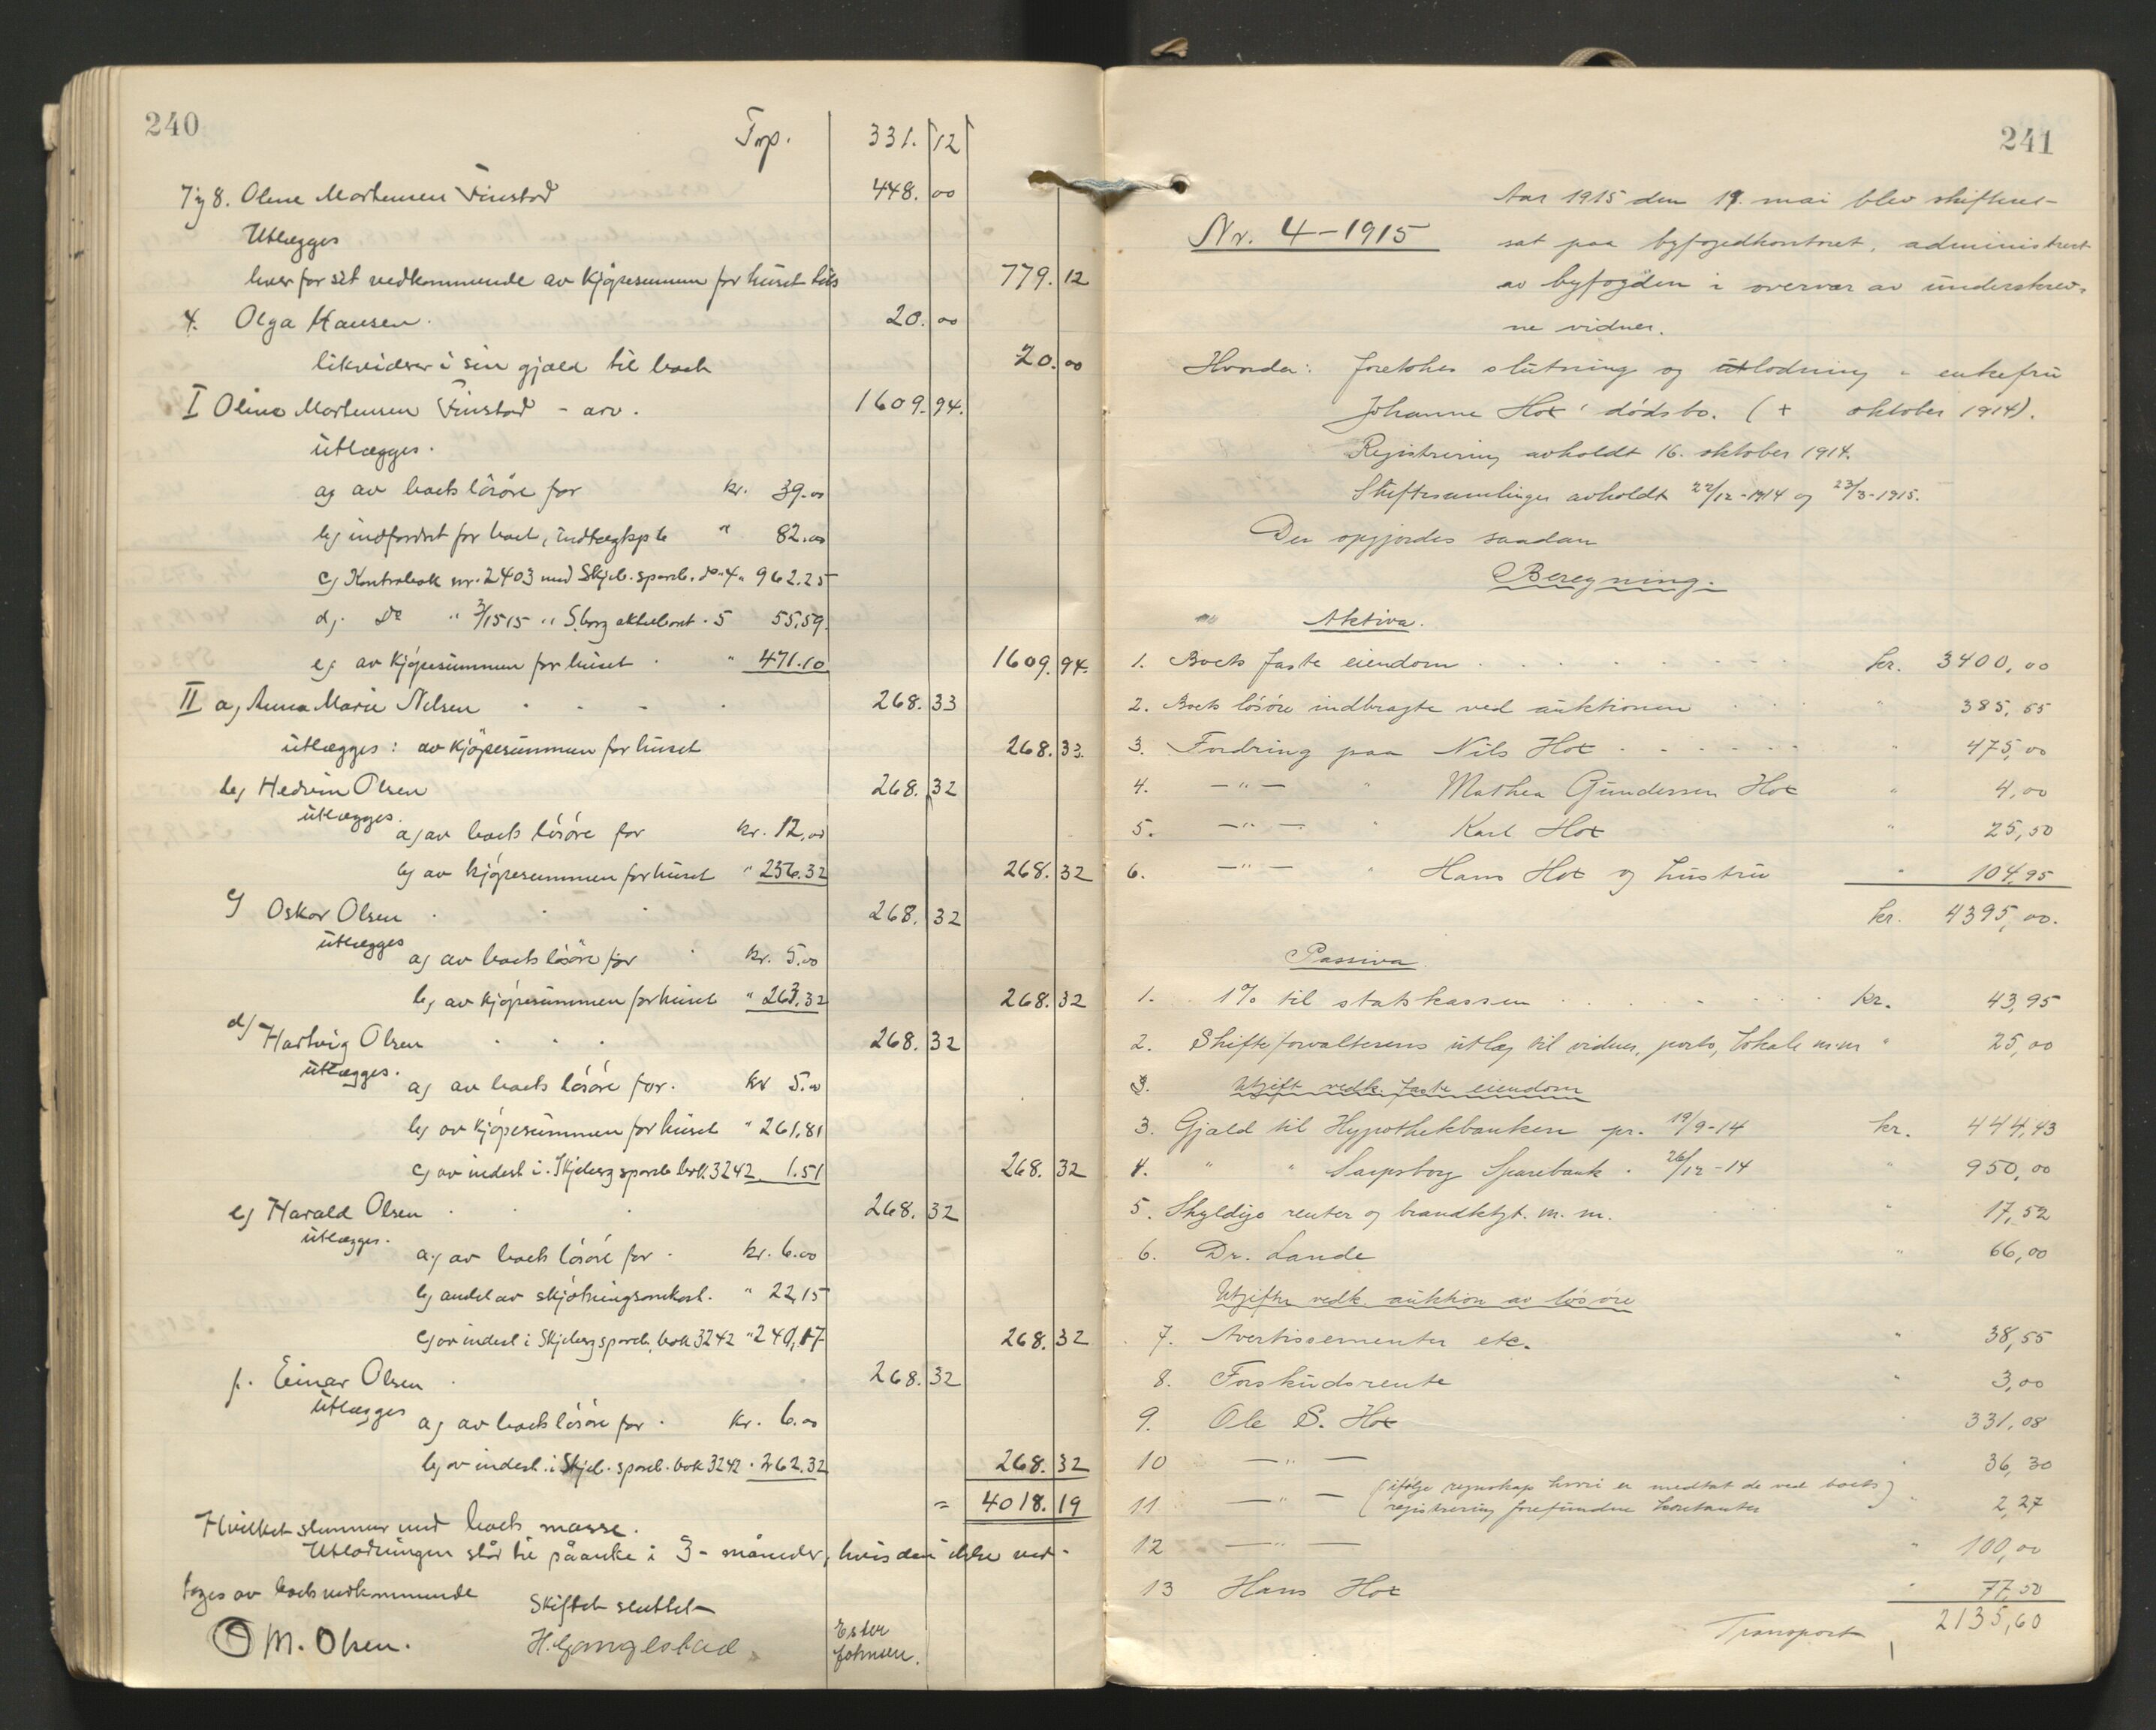 240
Trp. 331. 12
7 og 8. Oline Mortensen Finstad 448. 00
Utlægges
hver for sit vedkommende av kjøpesummen for huset tils 779. 12
4. Olga Hansen. 20. 00
likviderer i sin gjæld til boet 20. 00
I Oline Mortensen Finstad - arv. 1609. 94.
utlægges.
a) av boets løsøre for kr. 39.00
b) indfordret for boet, indtægtsp 6 " 82.00
c) Kontrabok nr. 2403 med Skjeb. spareb. do "4" 962.25
d). Do " 3/1515 " S.borg aktiebank " 5 55.59.
e) av kjøpesummen for huset " 471.10 1609. 94.
II a) Anna Marie Nilsen 268. 33
utlægges: av kjøpesummen for huset 268. 33.
b) Hedvin Olsen 268. 32
utlægges.
a) av boets løsøre for kr. 12.00
b) av kjøpesummen for huset " 256.32 268. 32
c) Oskar Olsen 268. 32
utlægges
a) av boets løsøre for kr. 5.00
b) av kjøpesummen for huset " 263.32 268. 32
d) Hartvig Olsen 268. 32
utlægges.
a) av boets løsøre for. kr 5.00
b) av kjøpesummen for huset " 261.81
c) av indest i. Skjeberg spareb bok. 3242 1.51 268. 32
e) Harald Olsen 268. 32
utlægges.
a) av boets løsøre for kr. 6.00
b) andel av skjøtningsomkost. " 22,15
c) av indest i Skjeberg spareb. bok 3242 " 240,17 268. 32
f. Einar Olsen 268. 32
utlægges
a) av boets løsøre for kr. 6.00
b) av indest. i Skjeb. spareb. bok 3242 . 262.32 268. 32
= 4018. 19
Hvilket stemmer med boets masse.
Utlodningen står til påanke i 3 - måneder, hvis den ikke ved-
tages av boets vedkommende
Skiftet sluttet
O M. Olsen. H. Ganglstad Ester Johnsen.
241
Aar 1915 den 19. mai blev skifteret-
Nr. 4 - 1915 sat paa byfogedkontoret, administrert
av byfogden i overvær av underskrev-
ne vidner.
Hvorda: foretokes slutning og utlodning i enkefru
Johanne Hox' dødsbo. (+ oktober 1914).
Registrering avholdt 16. oktober 1914.
Skiftesamlinger avholdt 22/12-1914 og 23/3-1915.
Der opgjordes saadan
Beregning.
Aktiva.
1. Boets faste eiendom kr. 3400,00
2. Boets løsøre indbragte ved auktionen " 385,55
3. Fordring paa Nils Hox " 475,00
4. — " — " Mathea Gundersen Hox " 4,00
5. — " — " Karl Hox " 25,50
6. — " — " Hans Hox og hustru " 104,95
kr. 4395,00.
Passiva.
1. 1% til statskassen kr. 43,95
2. Skifteforvalterens utlæg til vidner, porto, lokale m.m " 25,00
3. Utgift vedk. faste eiendom
3. Gjæld til Hypothekbanken pr. 19/9-14 kr. 444,43
4. " " Sarpsborg Sparebank . 26/12-14 " 950,00
5. Skyldige renter og brandktgt. m. m. " 17,52
6. Dr. Lande " 66,00
Utgifter vedk. auktion av løsøre
7. Avertissementer etc. " 38,55
8. Forskudsrente " 3,00
9. Ole S. Hox " 331,08
10 — " — " 36,30
11 — " — (ifølge regnskap hvori er medtat de ved boets
registrering forefundne kontanter) " 2,27
12 — " — " 100,00
13 Hans Hox " 77,50
Transport 2135,60